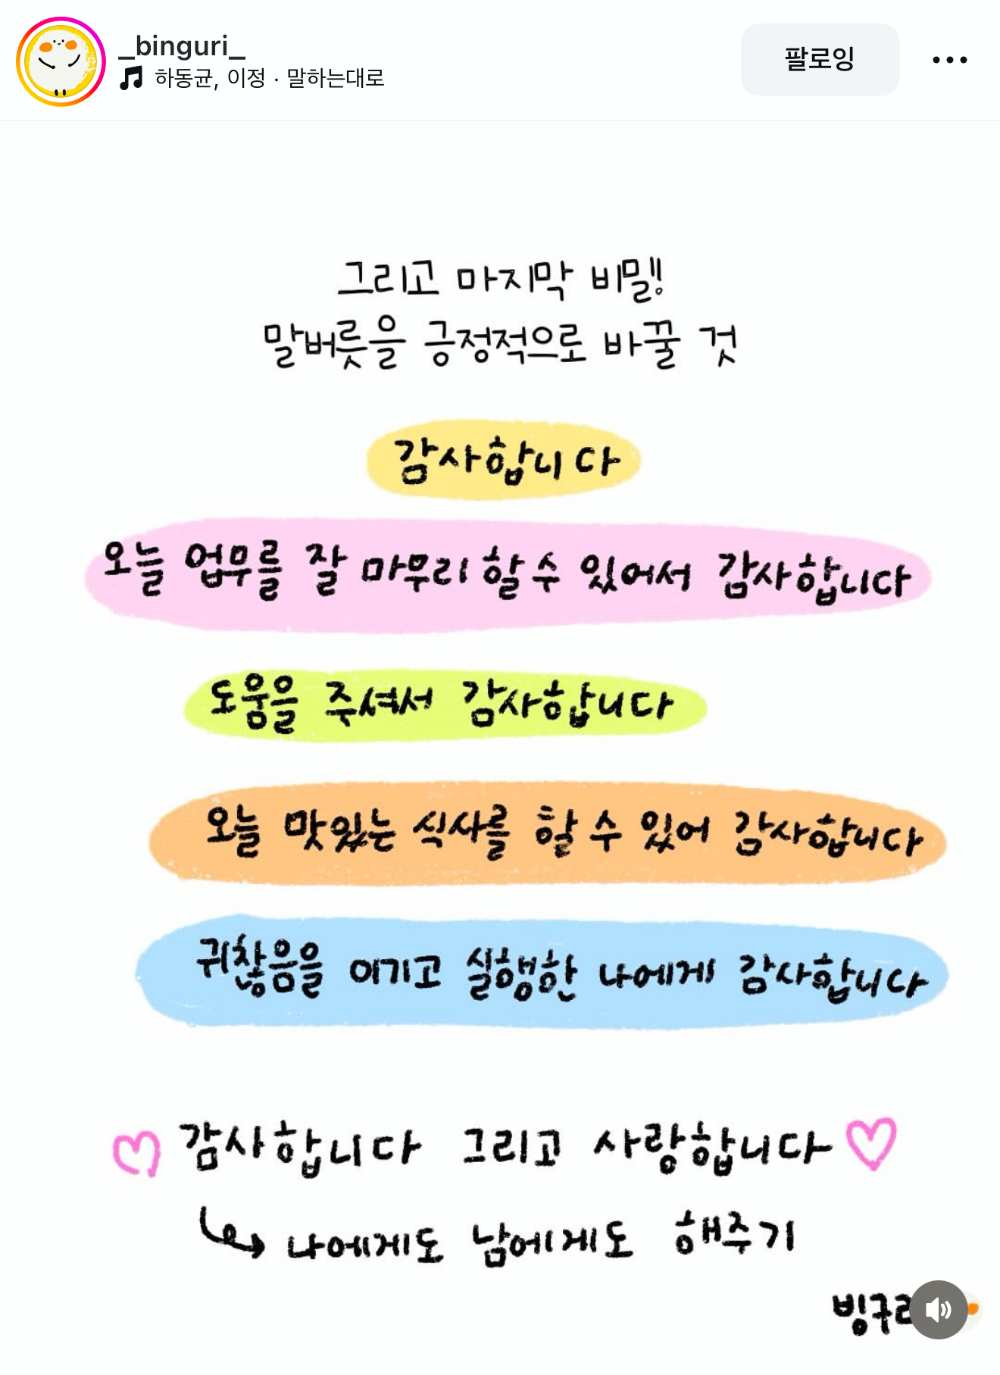 _binguri_
하동균, 이정 · 말하는대로
팔로잉
그리고 마지막 비밀!
말버릇을 긍정적으로 바꿀 것
감사합니다
오늘 업무를 잘 마무리 할 수 있어서 감사합니다
도움을 주셔서 감사합니다
오늘 맛있는 식사를 할 수 있어 감사합니다
귀찮음을 이기고 실행한 나에게 감사합니다
감사합니다 그리고 사랑합니다
나에게도 남에게도 해주기